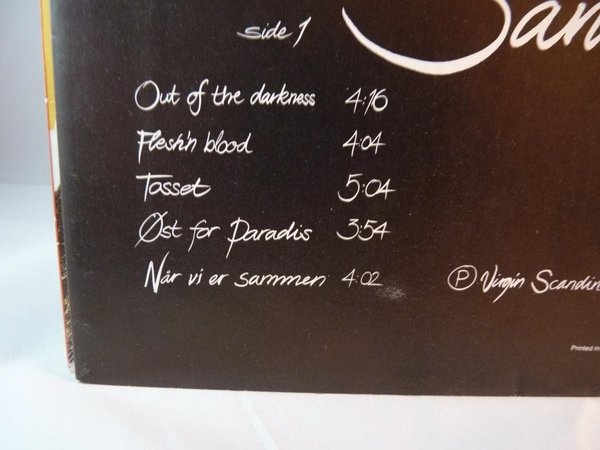 San
side 1
Out of the darkness 4:16
Flesh'n blood 4:04
Tosset 5:04
Øst for Paradis 3:54
Når vi er sammen 4:02
Ⓟ Virgin Scandin
Printed in